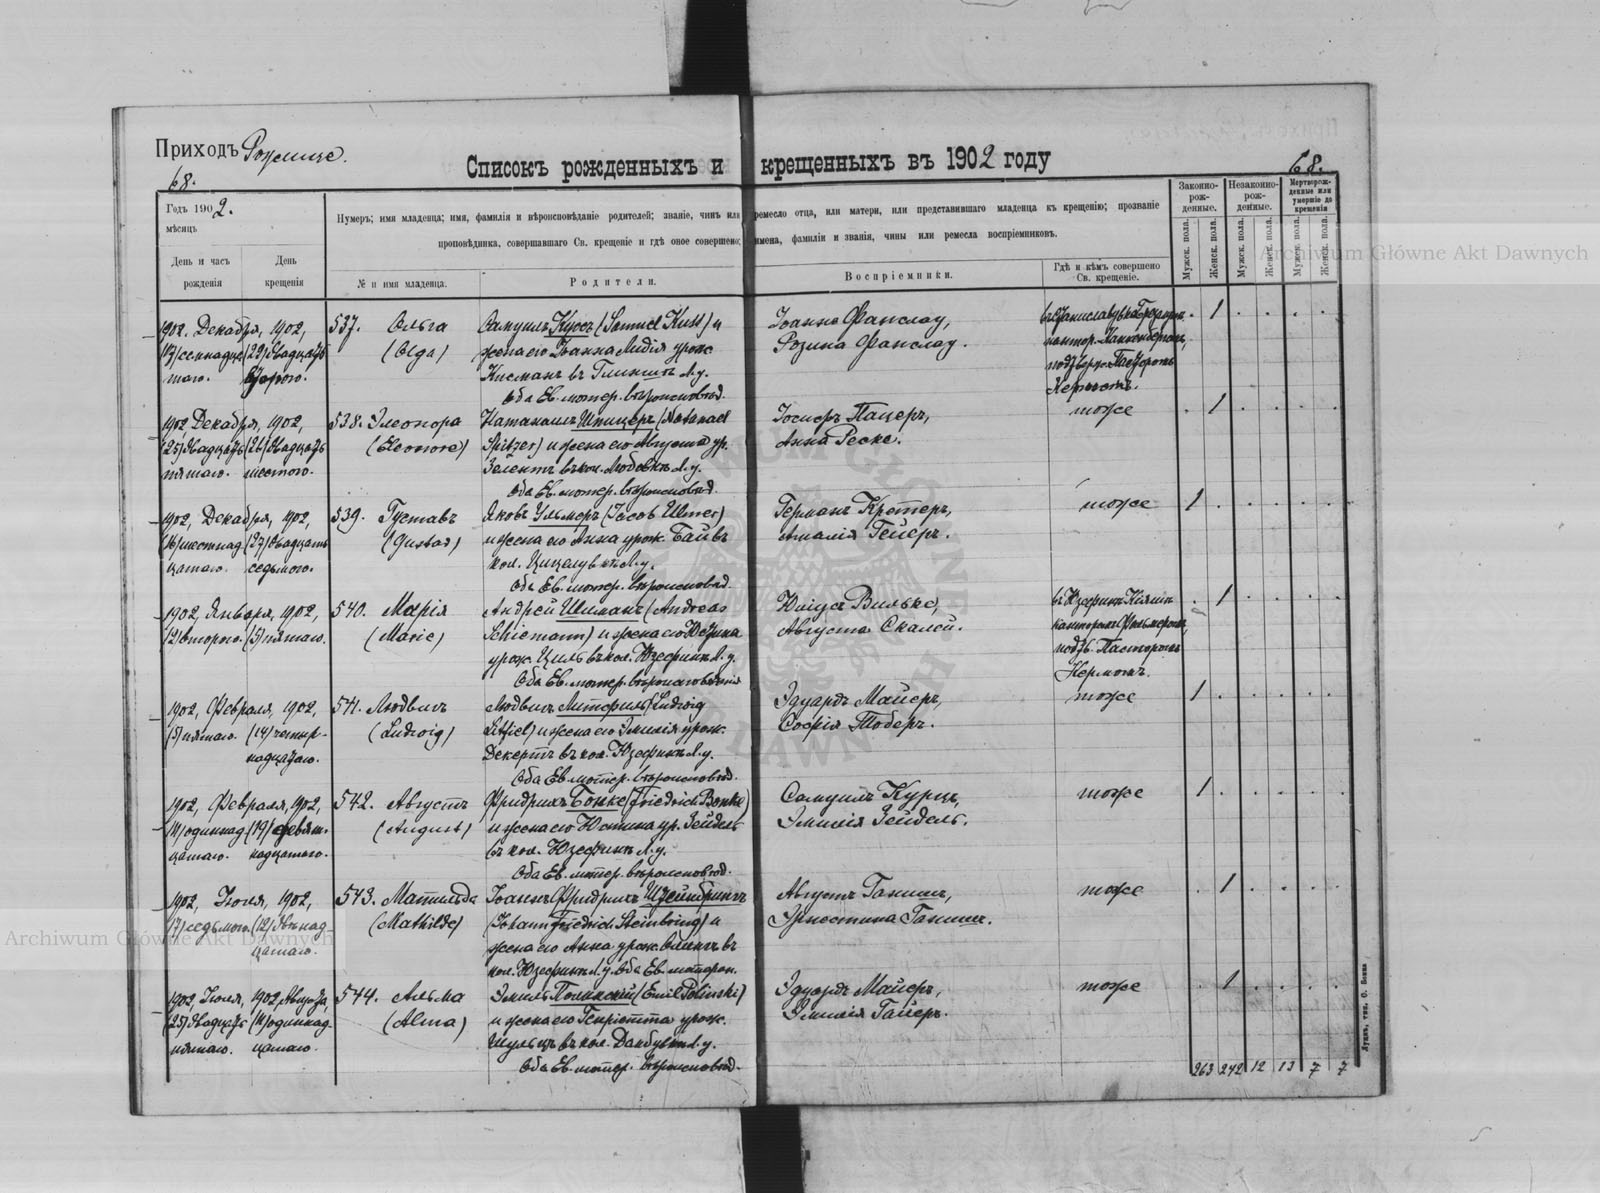 Приходъ Рожище.
68.
Списокъ рожденныхъ и крещенныхъ въ 1902 году
68.
Годъ 1902.
мѣсяцъ
День и часъ рожденія
День крещенія
Нумеръ; имя младенца; имя, фамилія и вѣроисповѣданіе родителей; званіе, чинъ или ремесло отца, или матери, или представившаго младенца къ крещенію; прозваніе
проповѣдника, совершавшаго Св. крещеніе и гдѣ оное совершено; имена, фамиліи и званія, чины или ремесла воспріемниковъ.
№ и имя младенца.
Родители.
Воспріемники.
Гдѣ и кѣмъ совершено Св. крещеніе.
Законнорожденные.
Незаконнорожденные.
Мертворожденные или умершіе до крещенія
Мужск. пола.
Женск. пола.
Мужск. пола.
Женск. пола.
Мужск. пола.
Женск. пола.
1902. Декабря, 1902,
537. Ольга
(Olga)
Самуилъ Куссъ (Samuel Kuss) и
жена его Іоанна Лидія урож.
Оба Ев. лютер. вѣроисповѣд.
Розина Фанслау.
1
1902 Декабря, 1902,
(25) двадцать (26) двадцать
пятаго. шестого.
538. Элеонора
(Eleonore)
Натанаилъ Шпицеръ (Natanael
Spitzer) и жена его Августа ур.
Оба Ев. лютер. вѣроисповѣд.
Анна Реске.
тоже
1
1902, Декабря, 1902,
(16) шестнад (27) двадцать
цатаго. седьмого.
539. Густавъ
(Gustav)
Яковъ Ульмеръ (Jacob Ulmer)
и жена его Анна урож.
Оба Ев. лютер. вѣроисповѣд.
Германъ Кретеръ,
Амалія Гейеръ.
тоже
1
1902, Января, 1902,
(2) второго. (5) пятаго.
540. Марія
(Marie)
Андрей Шиманъ (Andreas
Schiemann) и жена его Юстина
урож. Циль въ кол. Юзефинъ Л. у.
Оба Ев. лютер. вѣроисповѣданія
Юліусъ Вильке,
Августа Скалей.
1
1902, Февраля, 1902,
(5) пятаго. (14) четыр-
надцатаго.
541. Людвигъ
(Ludwig)
Людвигъ Литфиль (Ludwig
Litfiel) и жена его Эмилія урож.
Декертъ въ кол. Юзефинъ Л. у.
Оба Ев. лютер. вѣроисповѣд.
Эдуардъ Майеръ,
Софія Тоберъ.
тоже
1
1902, Февраля, 1902,
(11) одиннад (19) девят-
цатаго. надцатаго.
542. Августъ
(August)
Фридрихъ Бонке (Friedrich Bonke)
и жена его Юстина ур. Зейдель
въ кол. Юзефинъ Л. у.
Оба Ев. лютер. вѣроисповѣд.
Самуилъ Курцъ,
Эмилія Зейдель.
тоже
1
1902, Іюля, 1902,
(7) седьмого. (12) двѣнад-
цатаго.
543. Матильда
(Mathilde)
Іоаннъ Фридрихъ Штейнбрингъ
(Johann Friedrich Steinbring) и
жена его Анна урож.
кол. Юзефинъ Л. у. Оба Ев. лютеран.
Августъ Ганишъ,
Эрнестина Ганишъ.
тоже
1
1902, Іюля, 1902 Августа,
(25) двадцать (11) одиннад-
пятаго. цатаго.
544. Альма
(Alma)
Эмиль Полинскій (Emil Polinski)
и жена его Генріетта урож.
Шульцъ въ кол. Домбувка Л. у.
Оба Ев. лютер. вѣроисповѣд.
Эдуардъ Майеръ,
Эмилія Гайеръ.
тоже
1
263 242 12 13 7 7
Archiwum Główne Akt Dawnych
Archiwum Główne Akt Dawnych